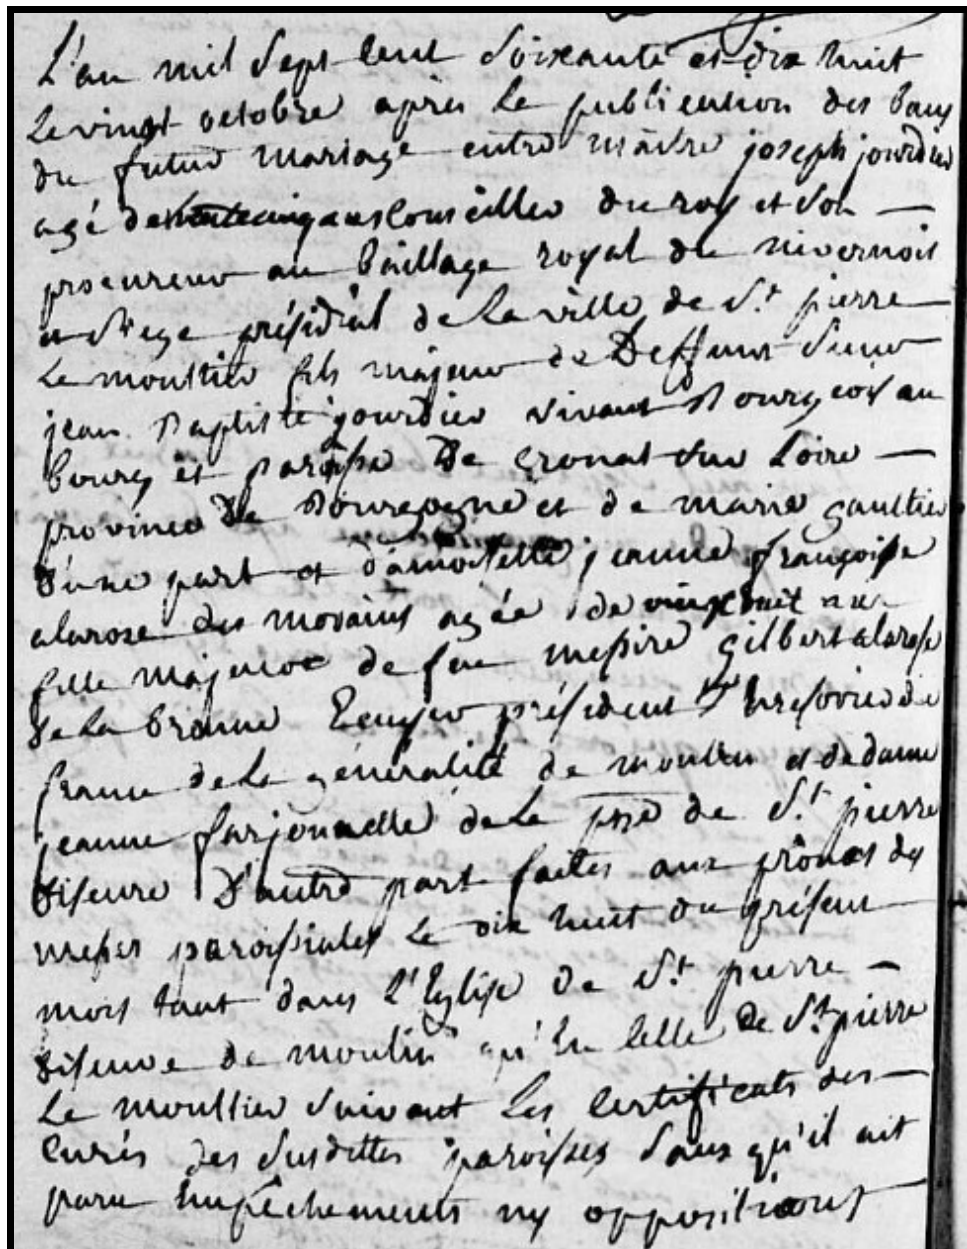 L'an mil sept cent soixante et dix huit
le vingt octobre après la publication des bans
du futur mariage entre maitre joseph jourdier
agé de trente cinq ans Conseiller du roy et son
procureur au bailliage royal du nivernois
et siege présidial de la ville de St pierre
le moustier fils majeur de Deffunt sieur
jean Baptiste jourdier vivant Bourgeois au
bourg et paroisse De Cronat sur Loire
province De Bourgogne et de marie gaultier
d'une part et damoiselle jeanne françoise
alarose des morains agée de vingt huit ans
fille majeure de feu messire gilbert alarose
de la bronne Ecuyer président trésorier de
france de la généralité de moulin et de dame
jeanne farjonnelle de la psse de St pierre
diseure D'autre part faites aux prônes des
messes paroissiales le dix huit du présent
mois tant dans l'Eglise de St pierre
diseure de moulin qu'en celle de St pierre
le moustier suivant les certificats des
curés des susdittes paroisses sans qu'il ait
paru empêchements ny oppositions